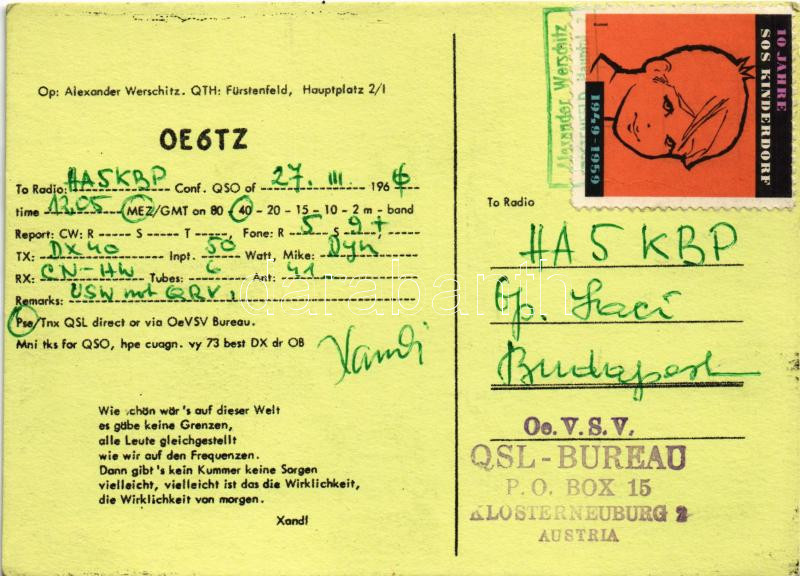 Op: Alexander Werschitz. QTH: Fürstenfeld, Hauptplatz 2/I
OE6TZ
To Radio: HA5KBP Conf. QSO of 27. III 1966
time 12,05 MEZ/GMT on 80 - 40 - 20 - 15 - 10 - 2 m - band
Report: CW: R - S - T , Fone: R 5 S 9+
TX: DX 40 Inpt. 50 Watt, Mike: Dyn
RX: CN-HW Tubes: 6 Ant: 41
Remarks: USW mt QRV,
Pse/Tnx QSL direct or via OeVSV Bureau.
Mni tks for QSO, hpe cuagn. vy 73 best DX dr OB
Xandi
Wie schön wär's auf dieser Welt
es gäbe keine Grenzen,
alle Leute gleichgestellt
wie wir auf den Frequenzen.
Dann gibt's kein Kummer keine Sorgen
vielleicht, vielleicht ist das die Wirklichkeit,
die Wirklichkeit von morgen.
Xandl
Alexander Werschitz
10 JAHRE
SOS KINDERDORF
1949-1959
To Radio
HA5KBP
Op. Laci
Budapest
Oe.V.S.V.
QSL-BUREAU
P.O. BOX 15
KLOSTERNEUBURG 2
AUSTRIA
darabanth